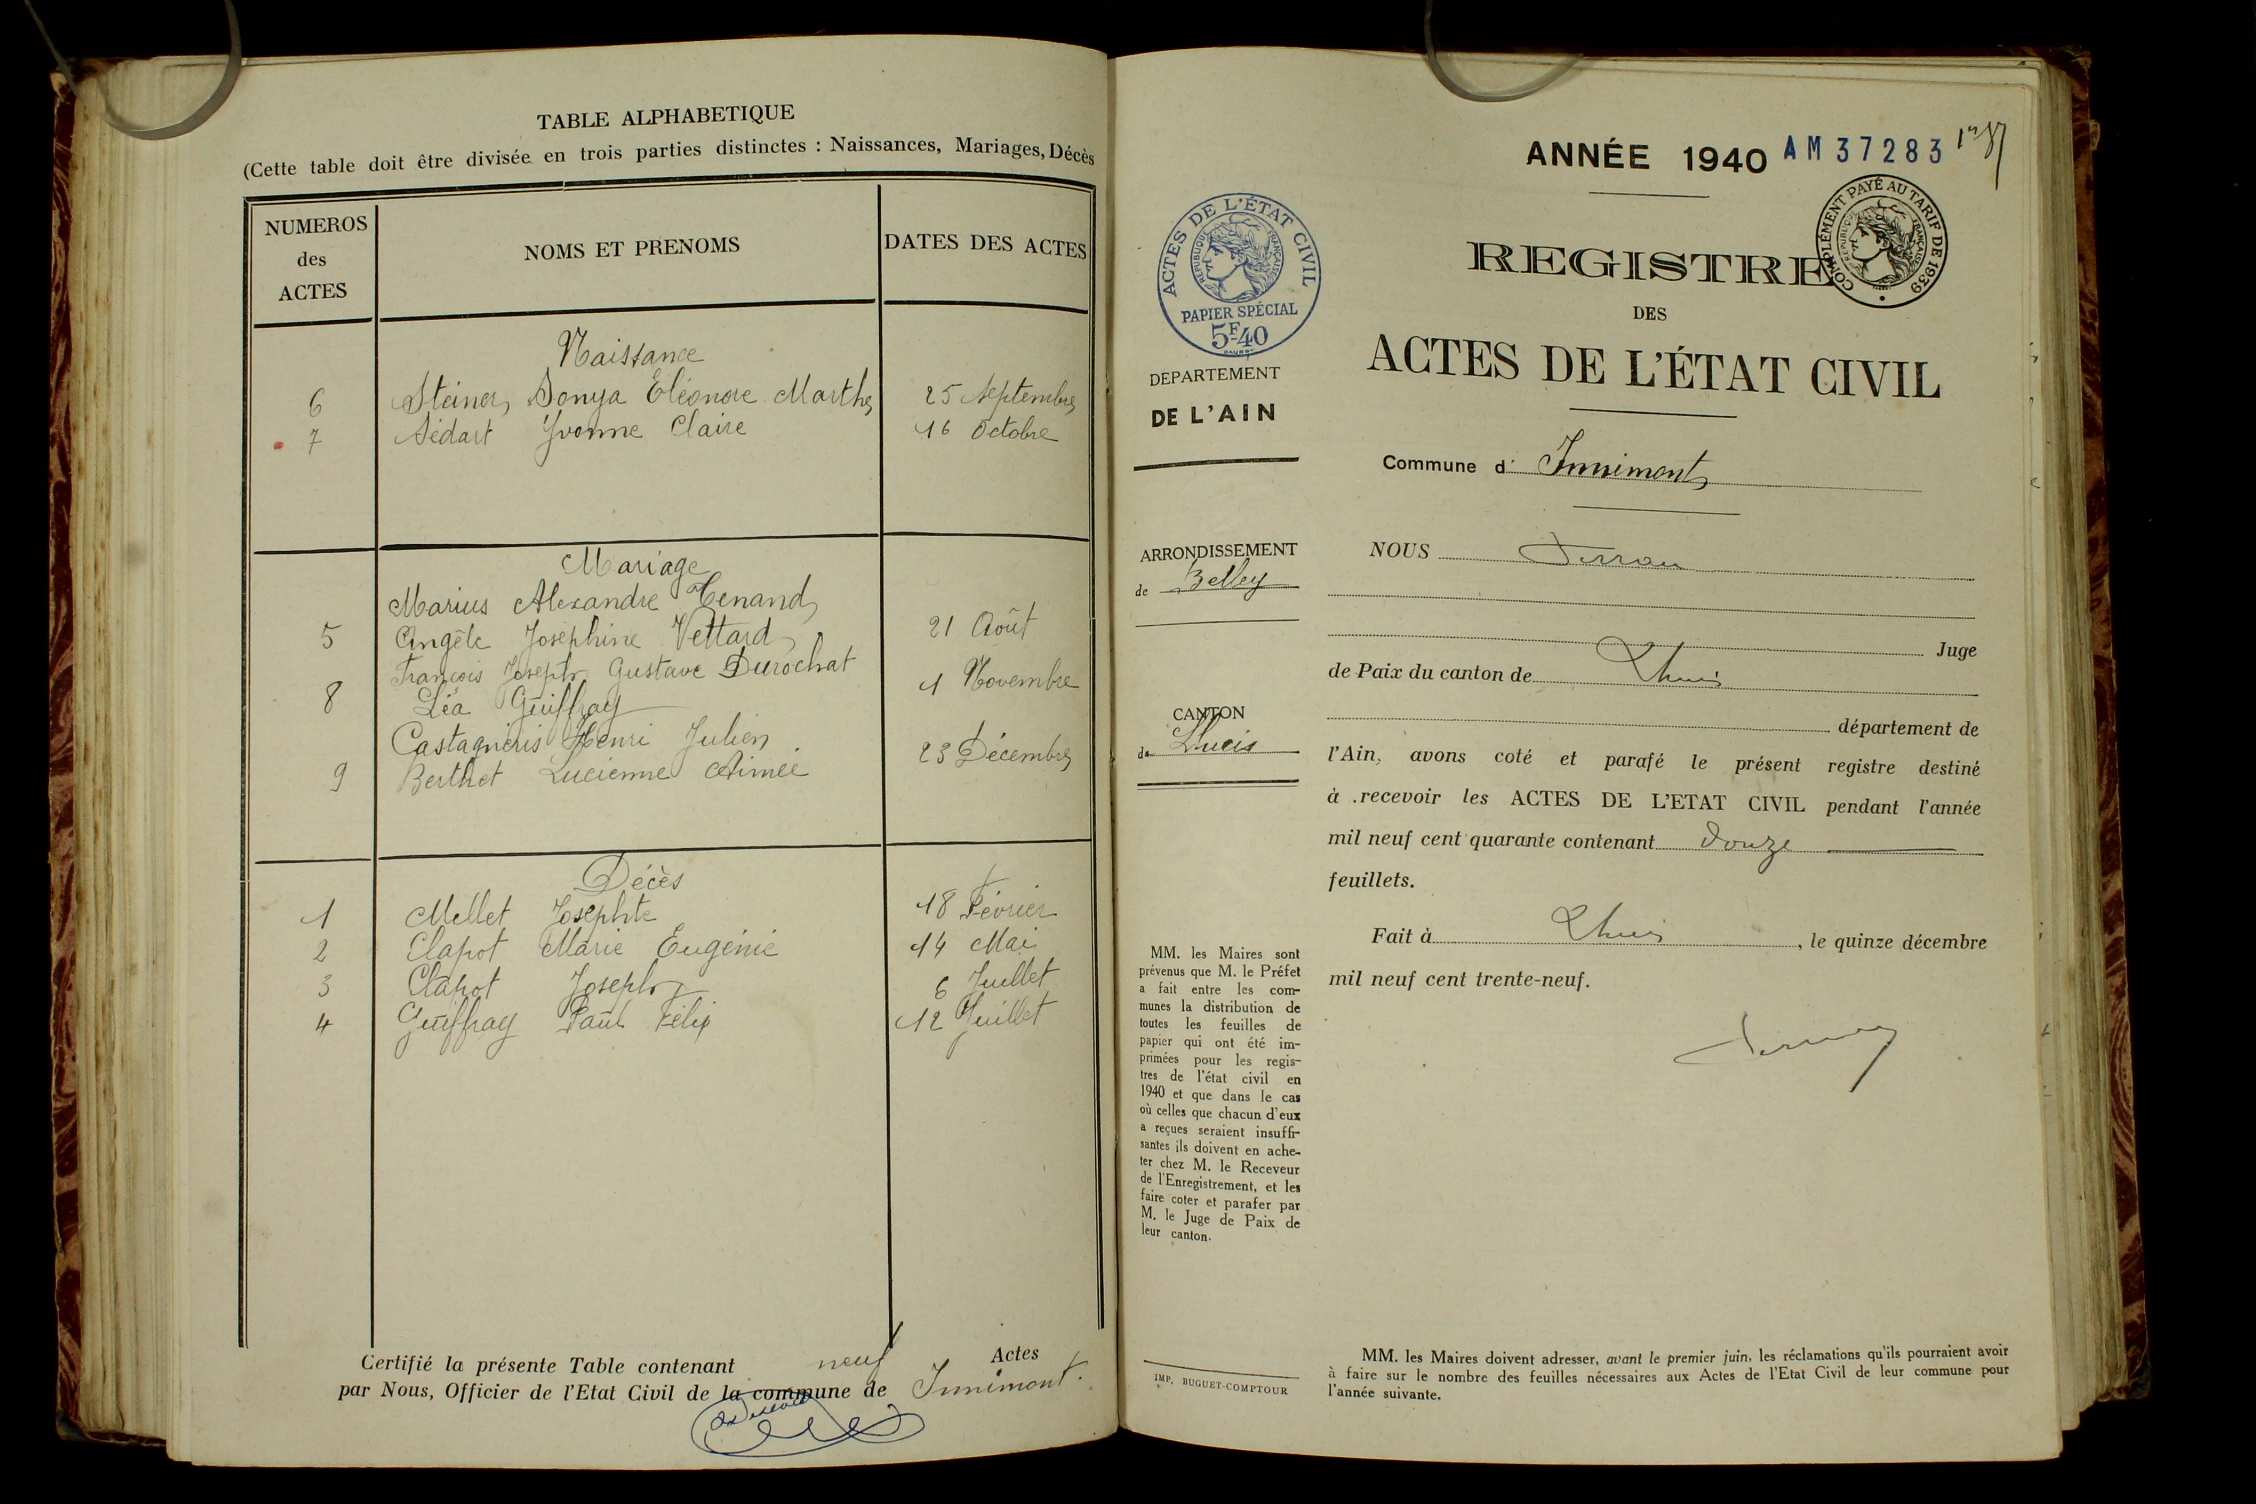 TABLE ALPHABETIQUE
(Cette table doit être divisée en trois parties distinctes : Naissances, Mariages, Décès
NUMEROS des ACTES
NOMS ET PRENOMS
DATES DES ACTES
Naissance
6 Steiner Sonya Eléonore Marthe 25 Septembre
7 Sédart Yvonne Claire 16 Octobre
Mariage
Marius Alexandre Tenand
5 Angèle Joséphine Vettard 21 Août
François Joseph Gustave Durochat
8 Léa Guiffray 1 Novembre
Castagneris Henri Julien
9 Berthet Lucienne Aimée 23 Décembre
Décès
1 Mellet Josephte 18 Février
2 Clapot Marie Eugénie 14 Mai
3 Clapot Joseph 6 Juillet
4 Guiffray Paul Félix 12 Juillet
Certifié la présente Table contenant neuf Actes
par Nous, Officier de l'Etat Civil de la commune de Innimont.
ANNÉE 1940 AM 37283
COMPLÉMENT PAYÉ AU TARIF DE 1939
RÉPUBLIQUE FRANÇAISE
ACTES DE L'ÉTAT CIVIL
RÉPUBLIQUE FRANÇAISE
PAPIER SPÉCIAL
5F40
REGISTRE
DES
ACTES DE L'ÉTAT CIVIL
DEPARTEMENT
DE L'AIN
Commune d' Innimont
ARRONDISSEMENT
de Belley
CANTON
de Lhuis
NOUS
Juge
de Paix du canton de Lhuis
département de
l'Ain, avons coté et parafé le présent registre destiné
à recevoir les ACTES DE L'ETAT CIVIL pendant l'année
mil neuf cent quarante contenant douze
feuillets.
Fait à Lhuis, le quinze décembre
mil neuf cent trente-neuf.
MM. les Maires sont
prévenus que M. le Préfet
a fait entre les com-
munes la distribution de
toutes les feuilles de
papier qui ont été im-
primées pour les regis-
tres de l'état civil en
1940 et que dans le cas
où celles que chacun d'eux
a reçues seraient insuffi-
santes ils doivent en ache-
ter chez M. le Receveur
de l'Enregistrement, et les
faire coter et parafer par
M. le Juge de Paix de
leur canton.
IMP. BUGUET-COMPTOUR
MM. les Maires doivent adresser, avant le premier juin, les réclamations qu'ils pourraient avoir
à faire sur le nombre des feuilles nécessaires aux Actes de l'Etat Civil de leur commune pour
l'année suivante.